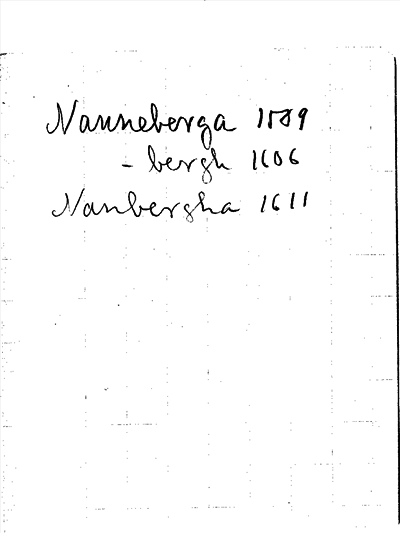 Nanneberga 1589
- bergh 1606
Nanbergha 1611